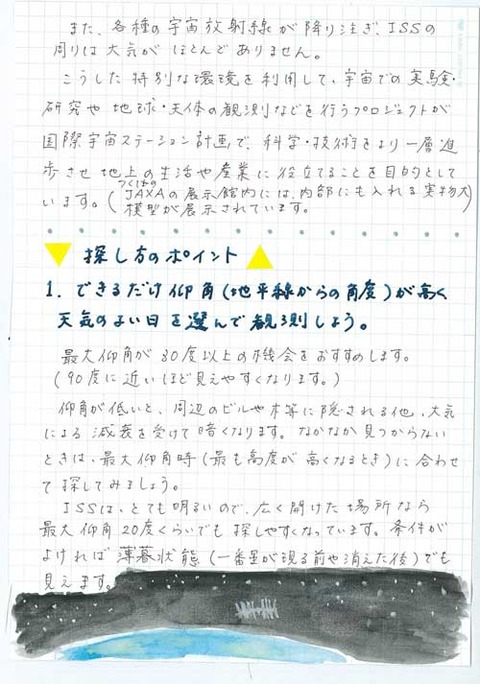 また、各種の宇宙放射線が降り注ぎ、ISSの
周りは大気がほとんどありません。
こうした特別な環境を利用して、宇宙での実験・
研究や地球・天体の観測などを行うプロジェクトが
国際宇宙ステーション計画で、科学・技術をより一層進
歩させ地上の生活や産業に役立てることを目的として
います。(つくばのJAXAの展示館内には、内部にも入れる実物大
模型が展示されています。)
探し方のポイント
1. できるだけ仰角(地平線からの角度)が高く
天気のよい日を選んで観測しよう。
最大仰角が30度以上の機会をおすすめします。
(90度に近いほど見えやすくなります。)
仰角が低いと、周辺のビルや木等に隠される他、大気
による減衰を受けて暗くなります。なかなか見つからない
ときは、最大仰角時(最も高度が高くなるとき)に合わせ
て探してみましょう。
ISSは、とても明るいので、広く開けた場所なら
最大仰角20度くらいでも探しやすくなっています。条件が
よければ薄暮状態(一番星が現る前や消えた後)でも
見えます。